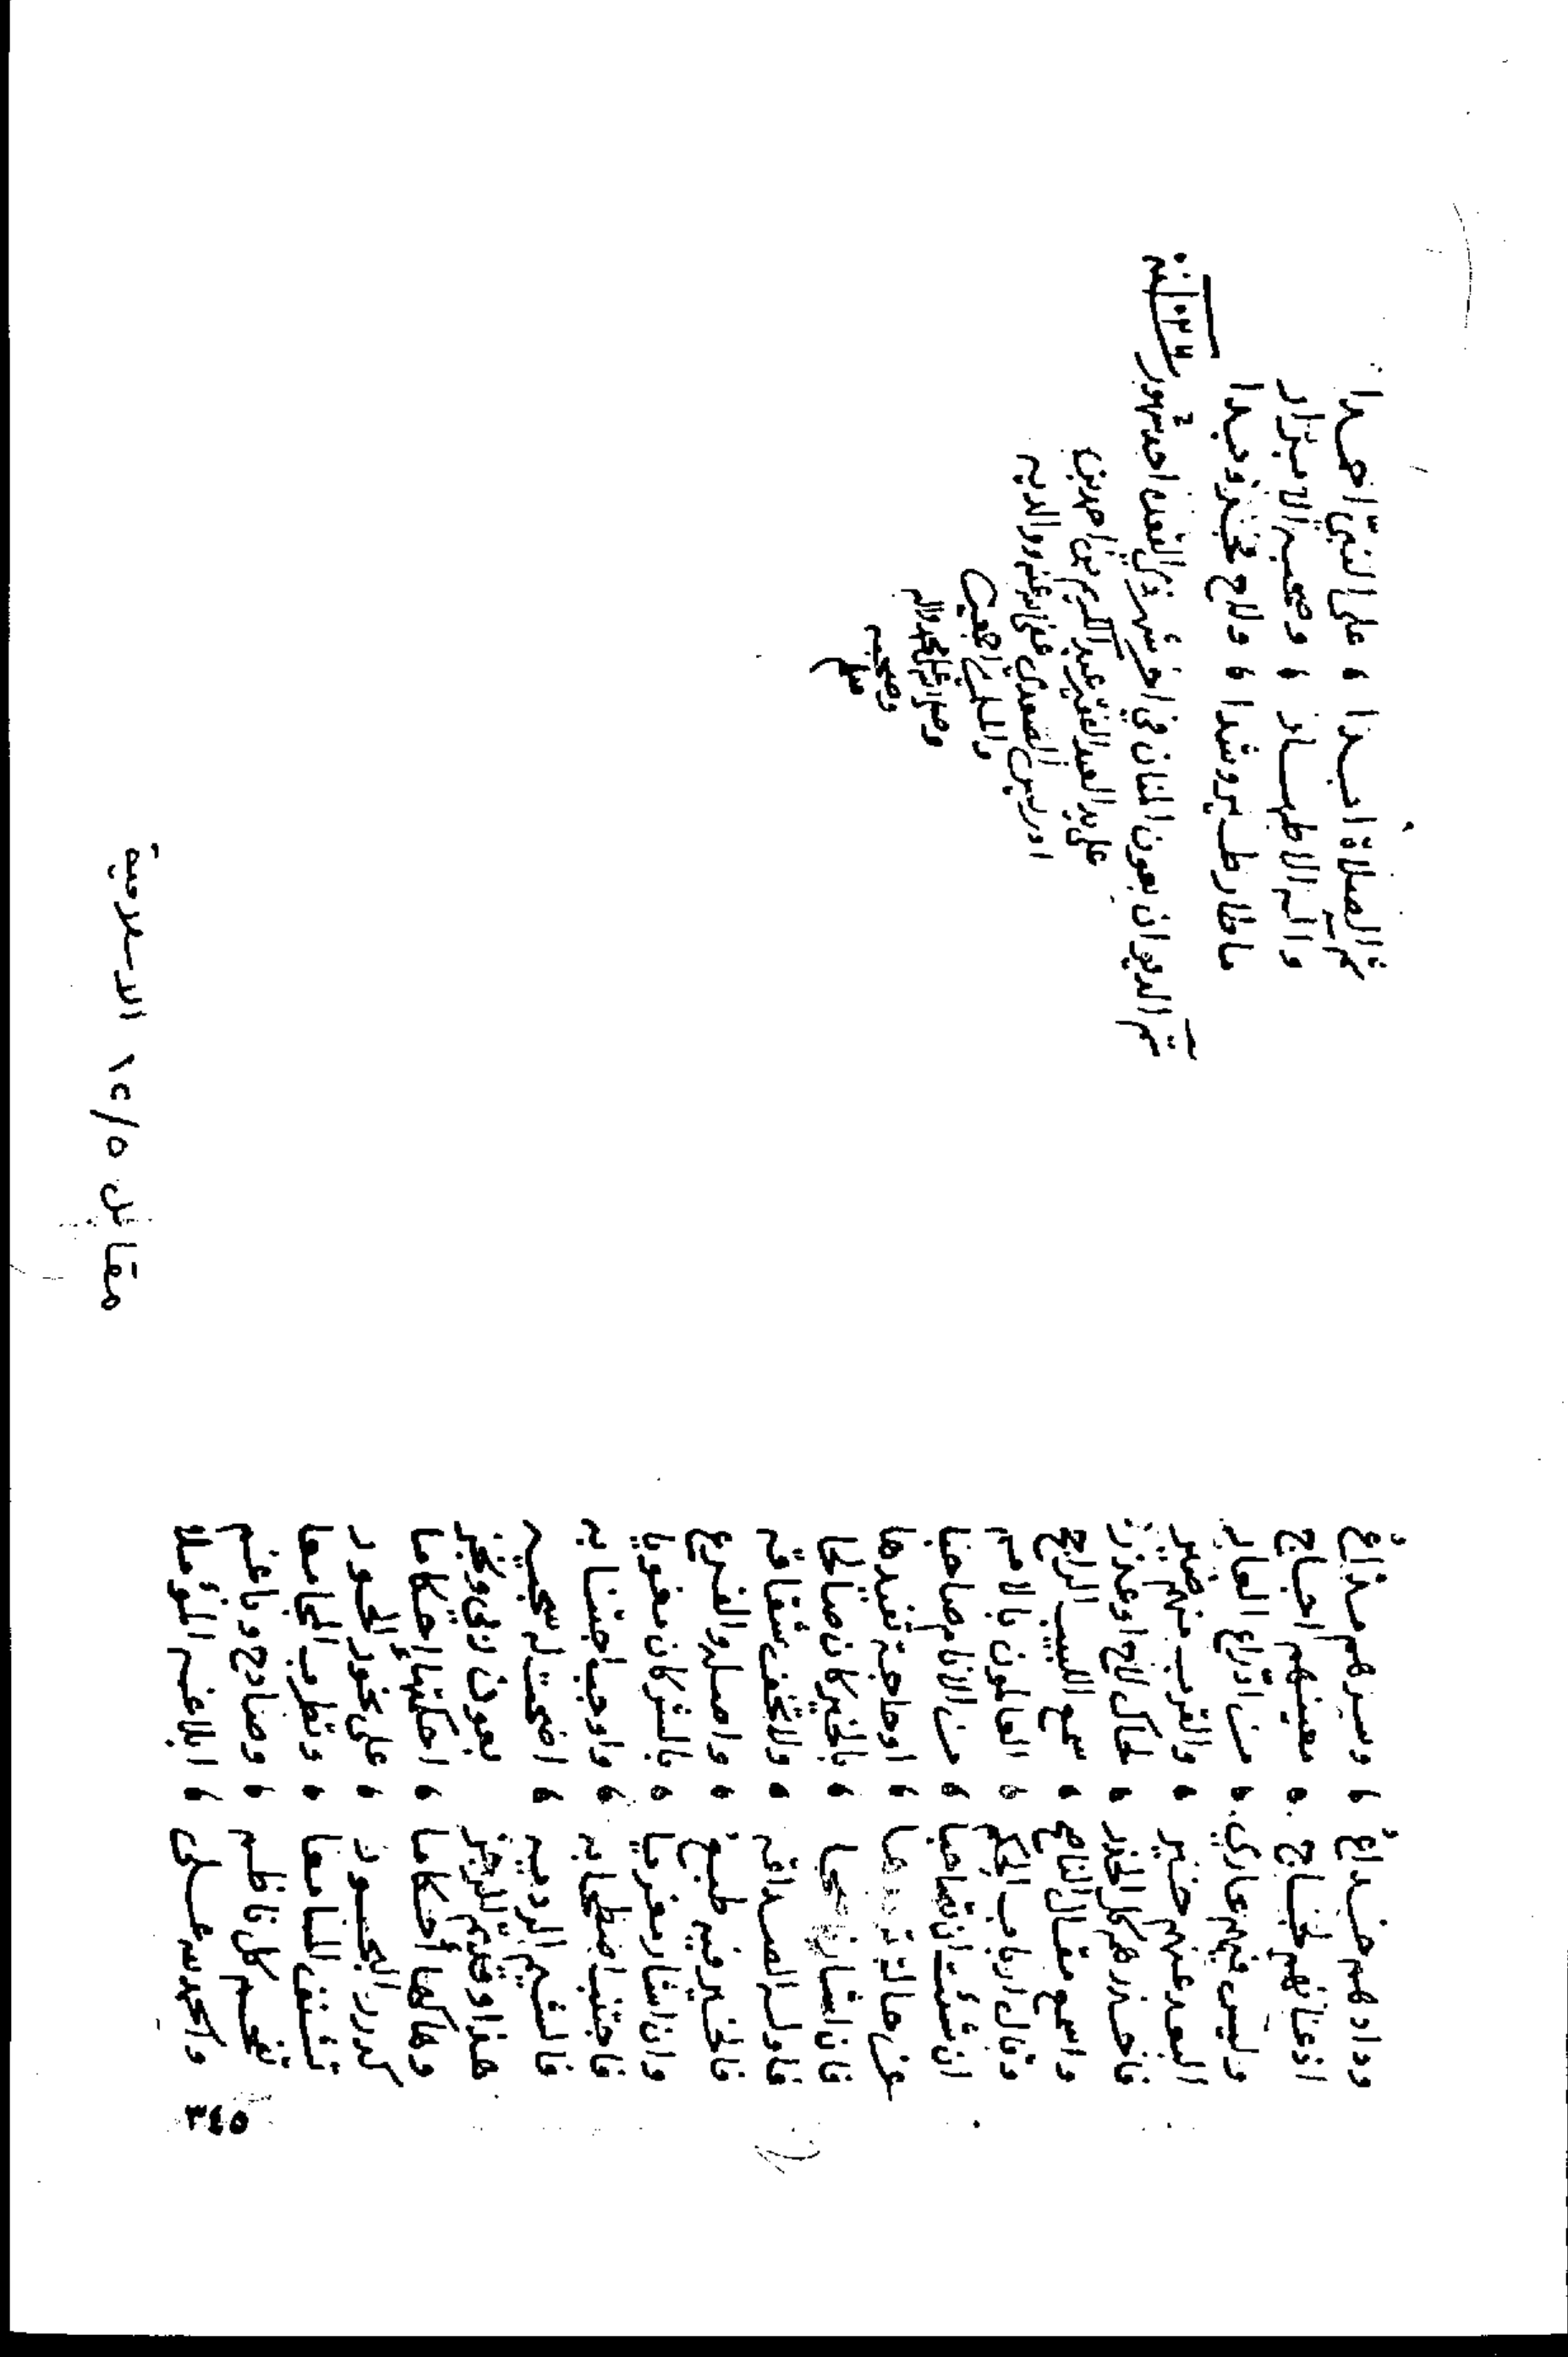 ودادهم خداع ؛ وسيرهم صداع
معينهم اجاج
وليس فيهم عاري ؛ من ادرع العار
البعد عنهم خير ؛ والقرب منهم ضير
فاحذرهم كل الحذر ؛ لحاك لاح او عذر
واسمع مقال الناصح ؛ سمع اللبيب الراجح
وقال ارباب الحكم ؛ العالمون بالامم
ان شئت ان تصاحبا ؛ من الانام صاحبا
عن حالة ؛ او حاجة
فان اشار ؛ بالخير كان صالحا
فاوله الصداقه ؛ ولا تخف شقاقه
فالخير فيه طبع ؛ واصله والفرع
وان اشار مغريا ؛ بالشر كان مغويا
فاجتنب اصطحابه ؛ واوجب اجتنابه
فالشيم الرديه ؛ اضحت له سجيه
هذا وقد تم الرجز ؛ بعون ربي ونجز
وهاكها أحكاما ؛ احكمتها إحكاما
كدرر البحور ؛ على نحور الحور
تشنف المسامعا ؛ وتطرب المجامعا
تفحم كل ناظم ؛ وصادح وناغم
والحمد لله على ؛ ابلاغه المؤملا
٣٤٥
ثم الصلاة ابدا ؛ على النبي احمدا
واله الاطهار ؛ وصحبه الابرار
ما طار طير وشدا ؛ ولاح وبدا
تم الديوان بعون المنان في اخر شهر ذي القعده احد شهور
على يد العبد الفقير عبد الكريم بن احمد بن
ادريس الصعدي عفى الله عنه ووالديه
والمسلمين اجمعين
وصلى الله على محمد واله
وصحبه
وسلم
مقابل